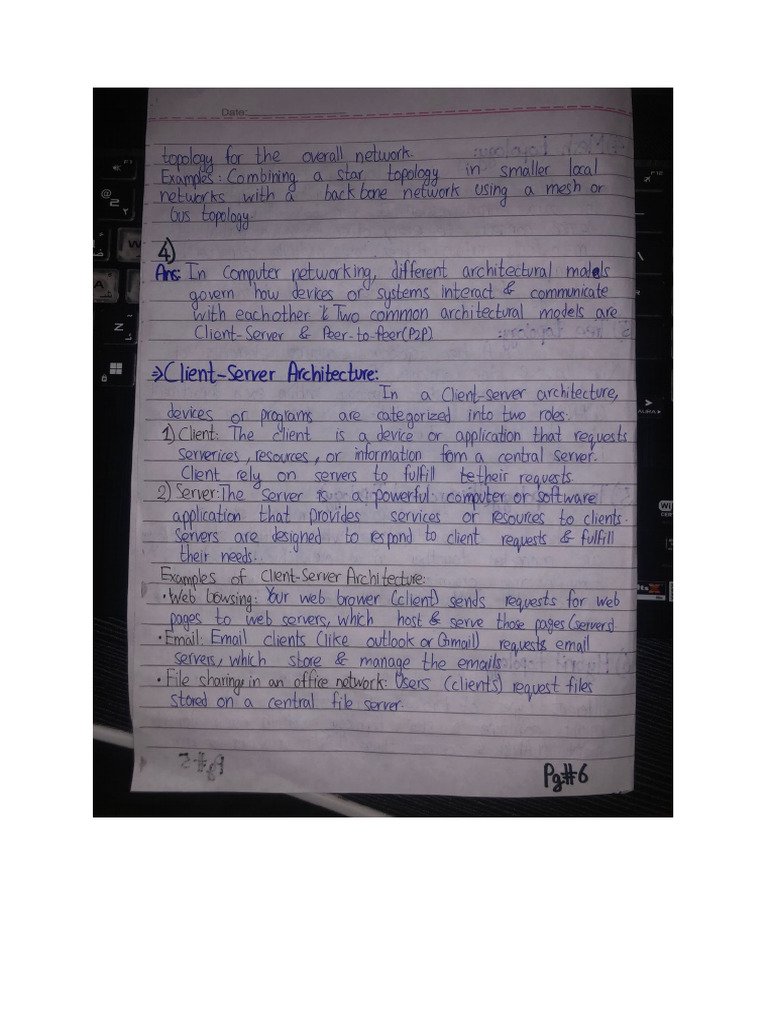 Date:
topology for the overall network.
Examples: Combining a star topology in smaller local
networks with a backbone network using a mesh or
bus topology.
4)
Ans: In computer networking, different architectural models
govern how devices or systems interact & communicate
with eachother & Two common architectural models are
Client-Server & Peer-to-Peer(P2P)
⇒Client-Server Architecture:
In a Client-server architecture,
devices or programs are categorized into two roles:
1) Client: The client is a device or application that requests
serverices, resources, or information fom a central server.
Client rely on servers to fulfill te their requests.
2) Server: The server is a powerful computer or software
application that provides services or resources to clients.
Servers are designed to respond to client requests & fulfill
their needs.
Examples of Client-Server Architecture:
• Web bowsing: Your web brower (client) sends requests for web
pages to web servers, which host & serve those pages (servers)
• Email: Email clients (like outlook or Gmail) requests email
servers, which store & manage the emails
• File sharing in an office network: Users (clients) request files
stored on a central file server.
Pg#6